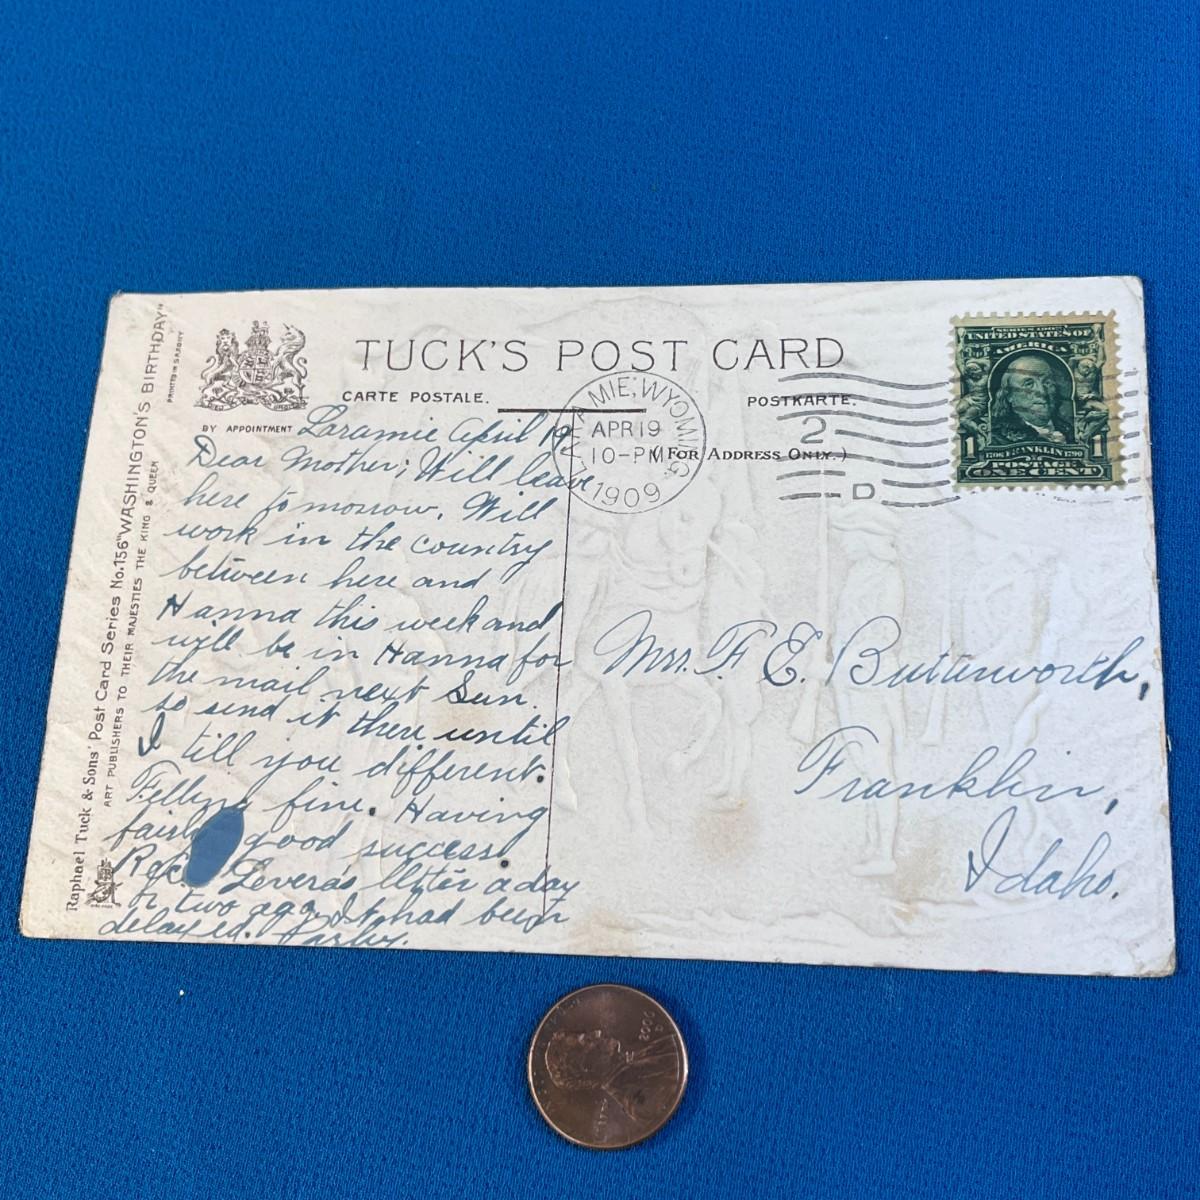 TUCK'S POST CARD
CARTE POSTALE.
POSTKARTE.
BY APPOINTMENT
(FOR ADDRESS ONLY.)
Raphael Tuck & Sons' Post Card Series No.156 "WASHINGTON'S BIRTHDAY"
ART PUBLISHERS TO THEIR MAJESTIES THE KING & QUEEN
PRINTED IN SAXONY
LARAMIE, WYOMING
APR 19
10-PM
1909
2
D
SERIES 1902
UNITED STATES OF
AMERICA
1 1
1706 FRANKLIN 1790
POSTAGE
ONE CENT
Laramie April 19
Dear Mother; Will leave
here tomorrow. Will
work in the country
between here and
Hanna this week and
will be in Hanna for
the mail next Sun.
so send it there until
I till you different.
Fellyng fine. Having
fairly good success.
Rec. Levera's letter a day
or two ago. It had been
delayed.
Mrs. F. E. Butterworth,
Franklin,
Idaho.
2009
D